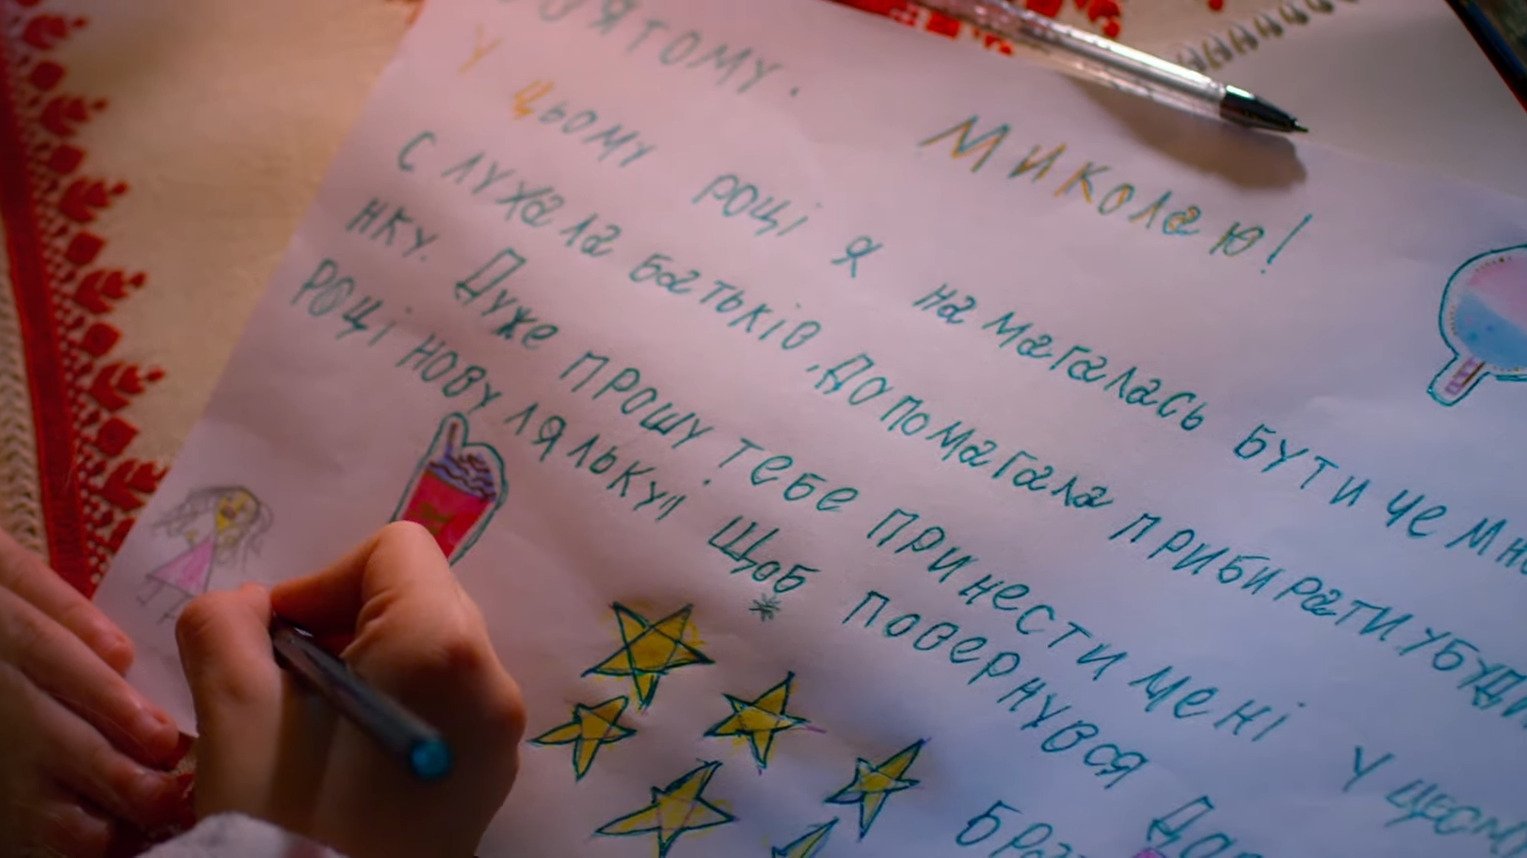 вятому. Миколаю!
У цьому році я намагалась бути чемно
Слухала батьків, допомагала прибирати у буди
нку. Дуже прошу тебе принести мені у цьому
році нову ляльку! Щоб повернувся